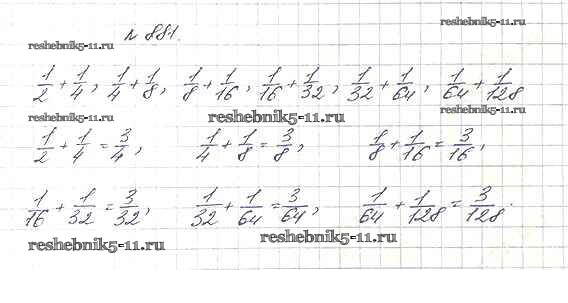 reshebnik5-11.ru
№ 881.
reshebnik5-11.ru
1/2 + 1/4, 1/4 + 1/8, 1/8 + 1/16, 1/16 + 1/32, 1/32 + 1/64, 1/64 + 1/128
reshebnik5-11.ru
reshebnik5-11.ru reshebnik5-11.ru
1/2 + 1/4 = 3/4, 1/4 + 1/8 = 3/8, 1/8 + 1/16 = 3/16,
1/16 + 1/32 = 3/32, 1/32 + 1/64 = 3/64, 1/64 + 1/128 = 3/128.
reshebnik5-11.ru reshebnik5-11.ru